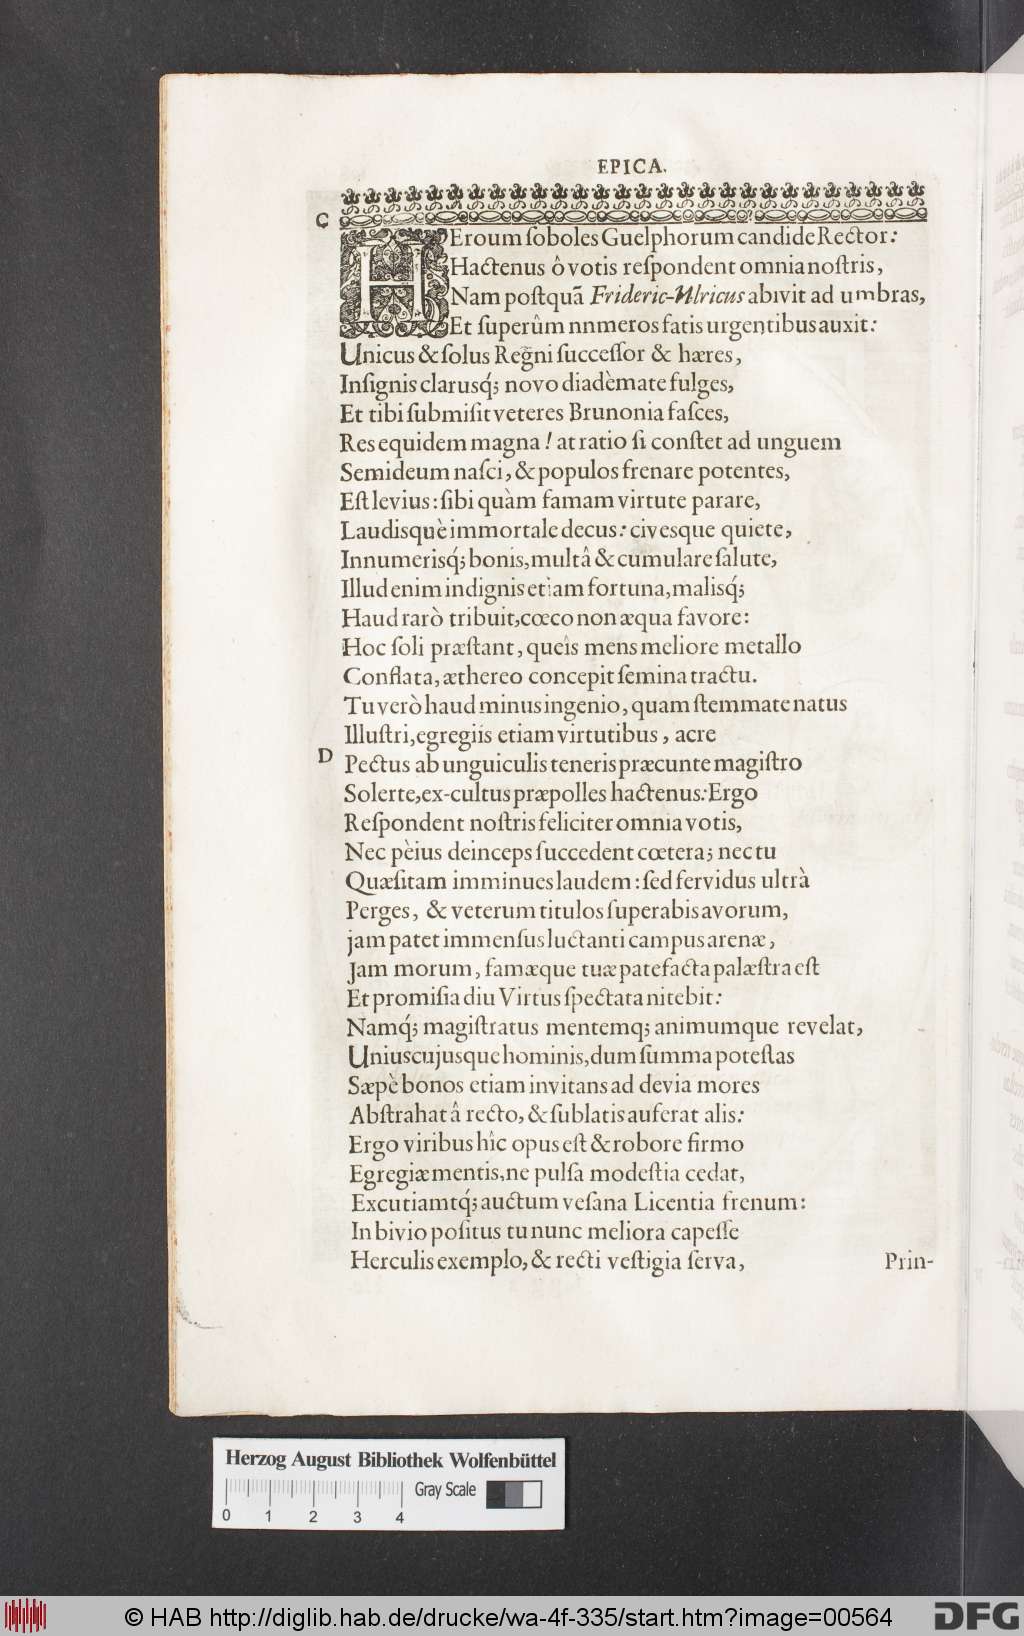 EPICA.
C
HEroum ſoboles Guelphorum candide Rector:
Hactenus ô votis reſpondent omnia noſtris,
Nam poſtquã Frideric-Ulricus abivit ad umbras,
Et ſuperûm nnmeros fatis urgentibus auxit:
Unicus & ſolus Regñi ſucceſſor & hæres,
Inſignis clarusq́; novo diadèmate fulges,
Et tibi ſubmiſit veteres Brunonia faſces,
Res equidem magna! at ratio ſi conſtet ad unguem
Semideum naſci, & populos frenare potentes,
Eſt levius: ſibi quàm famam virtute parare,
Laudisquè immortale decus: civesque quiete,
Innumerisq́; bonis, multâ & cumulare ſalute,
Illud enim indignis etiam fortuna, malisq́;
Haud rarò tribuit, cœco non æqua favore:
Hoc ſoli præſtant, queîs mens meliore metallo
Conflata, æthereo concepit ſemina tractu.
Tu verò haud minus ingenio, quam ſtemmate natus
Illuſtri, egregiis etiam virtutibus, acre
D
Pectus ab unguiculis teneris præcunte magiſtro
Solerte, ex-cultus præpolles hactenus: Ergo
Reſpondent noſtris feliciter omnia votis,
Nec pèius deinceps ſuccedent cœtera; nec tu
Quæſitam imminues laudem: ſed fervidus ultrà
Perges, & veterum titulos ſuperabis avorum,
jam patet immenſus luctanti campus arenæ,
Jam morum, famæque tuæ patefacta palæſtra eſt
Et promiſia diu Virtus ſpectata nitebit:
Namq́; magiſtratus mentemq; animumque revelat,
Uniuscujusque hominis, dum ſumma poteſtas
Sæpè bonos etiam invitans ad devia mores
Abſtrahat â recto, & ſublatis auferat alis:
Ergo viribus hîc opus eſt & robore firmo
Egregiæ mentis, ne pulſa modeſtia cedat,
Excutiamtq́; auctum veſana Licentia frenum:
In bivio poſitus tu nunc meliora capeſſe
Herculis exemplo, & recti veſtigia ſerva,
Prin-
Herzog August Bibliothek Wolfenbüttel
Gray Scale
0 1 2 3 4
© HAB http://diglib.hab.de/drucke/wa-4f-335/start.htm?image=00564
DFG